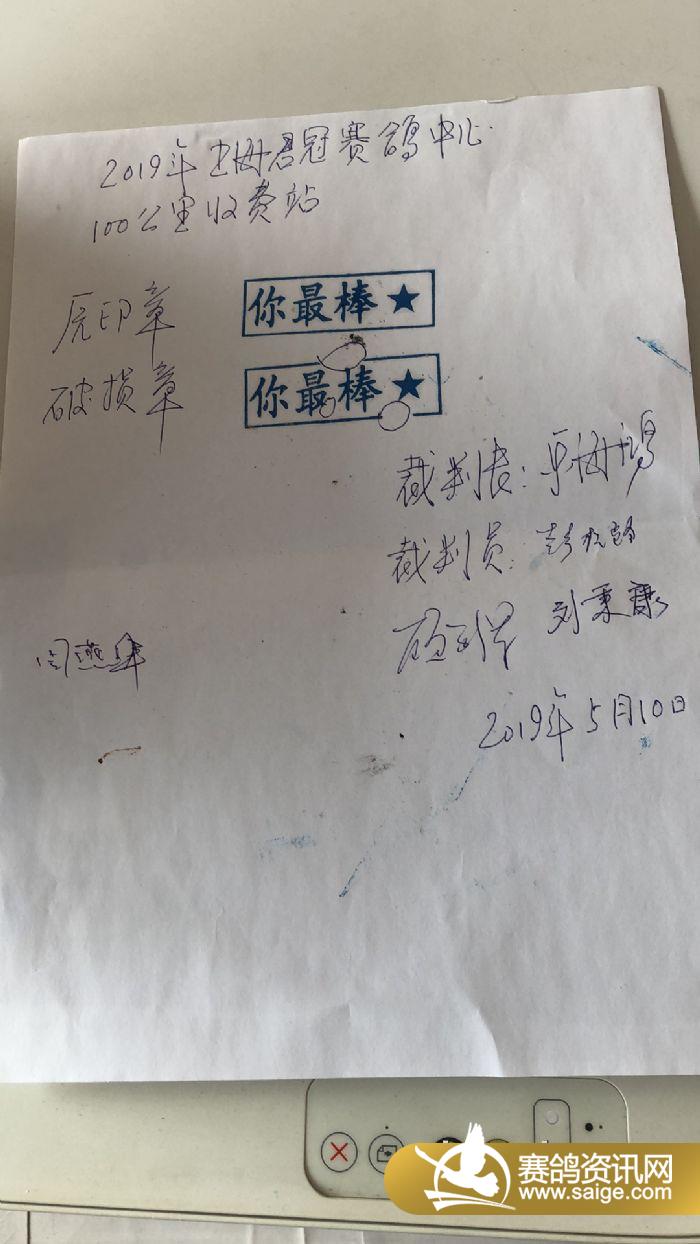 2019年上海君冠赛鸽中心
100公里收费站
原印章
你最棒★
破损章
你最棒★
裁判长:
裁判员:
刘秉康
2019年5月10日
赛鸽资讯网
www.saige.com